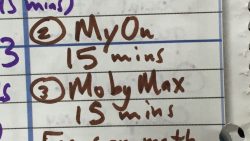 5 mins)
② MyOn
15 mins
③ MobyMax
15 mins